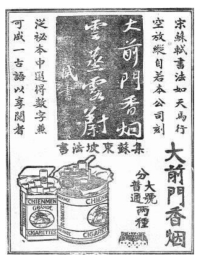 宋蘇軾書法如天馬行
空放縱自若本公司刻
大前門香烟
雲蒸霞蔚
從祕本中選得數字兼
可成一古語以享閱者
集蘇東坡法書
大前門香烟
大號
普通
分兩種
CHIENMEN
CIGARETTES
CHIENMEN
CIGARETTES